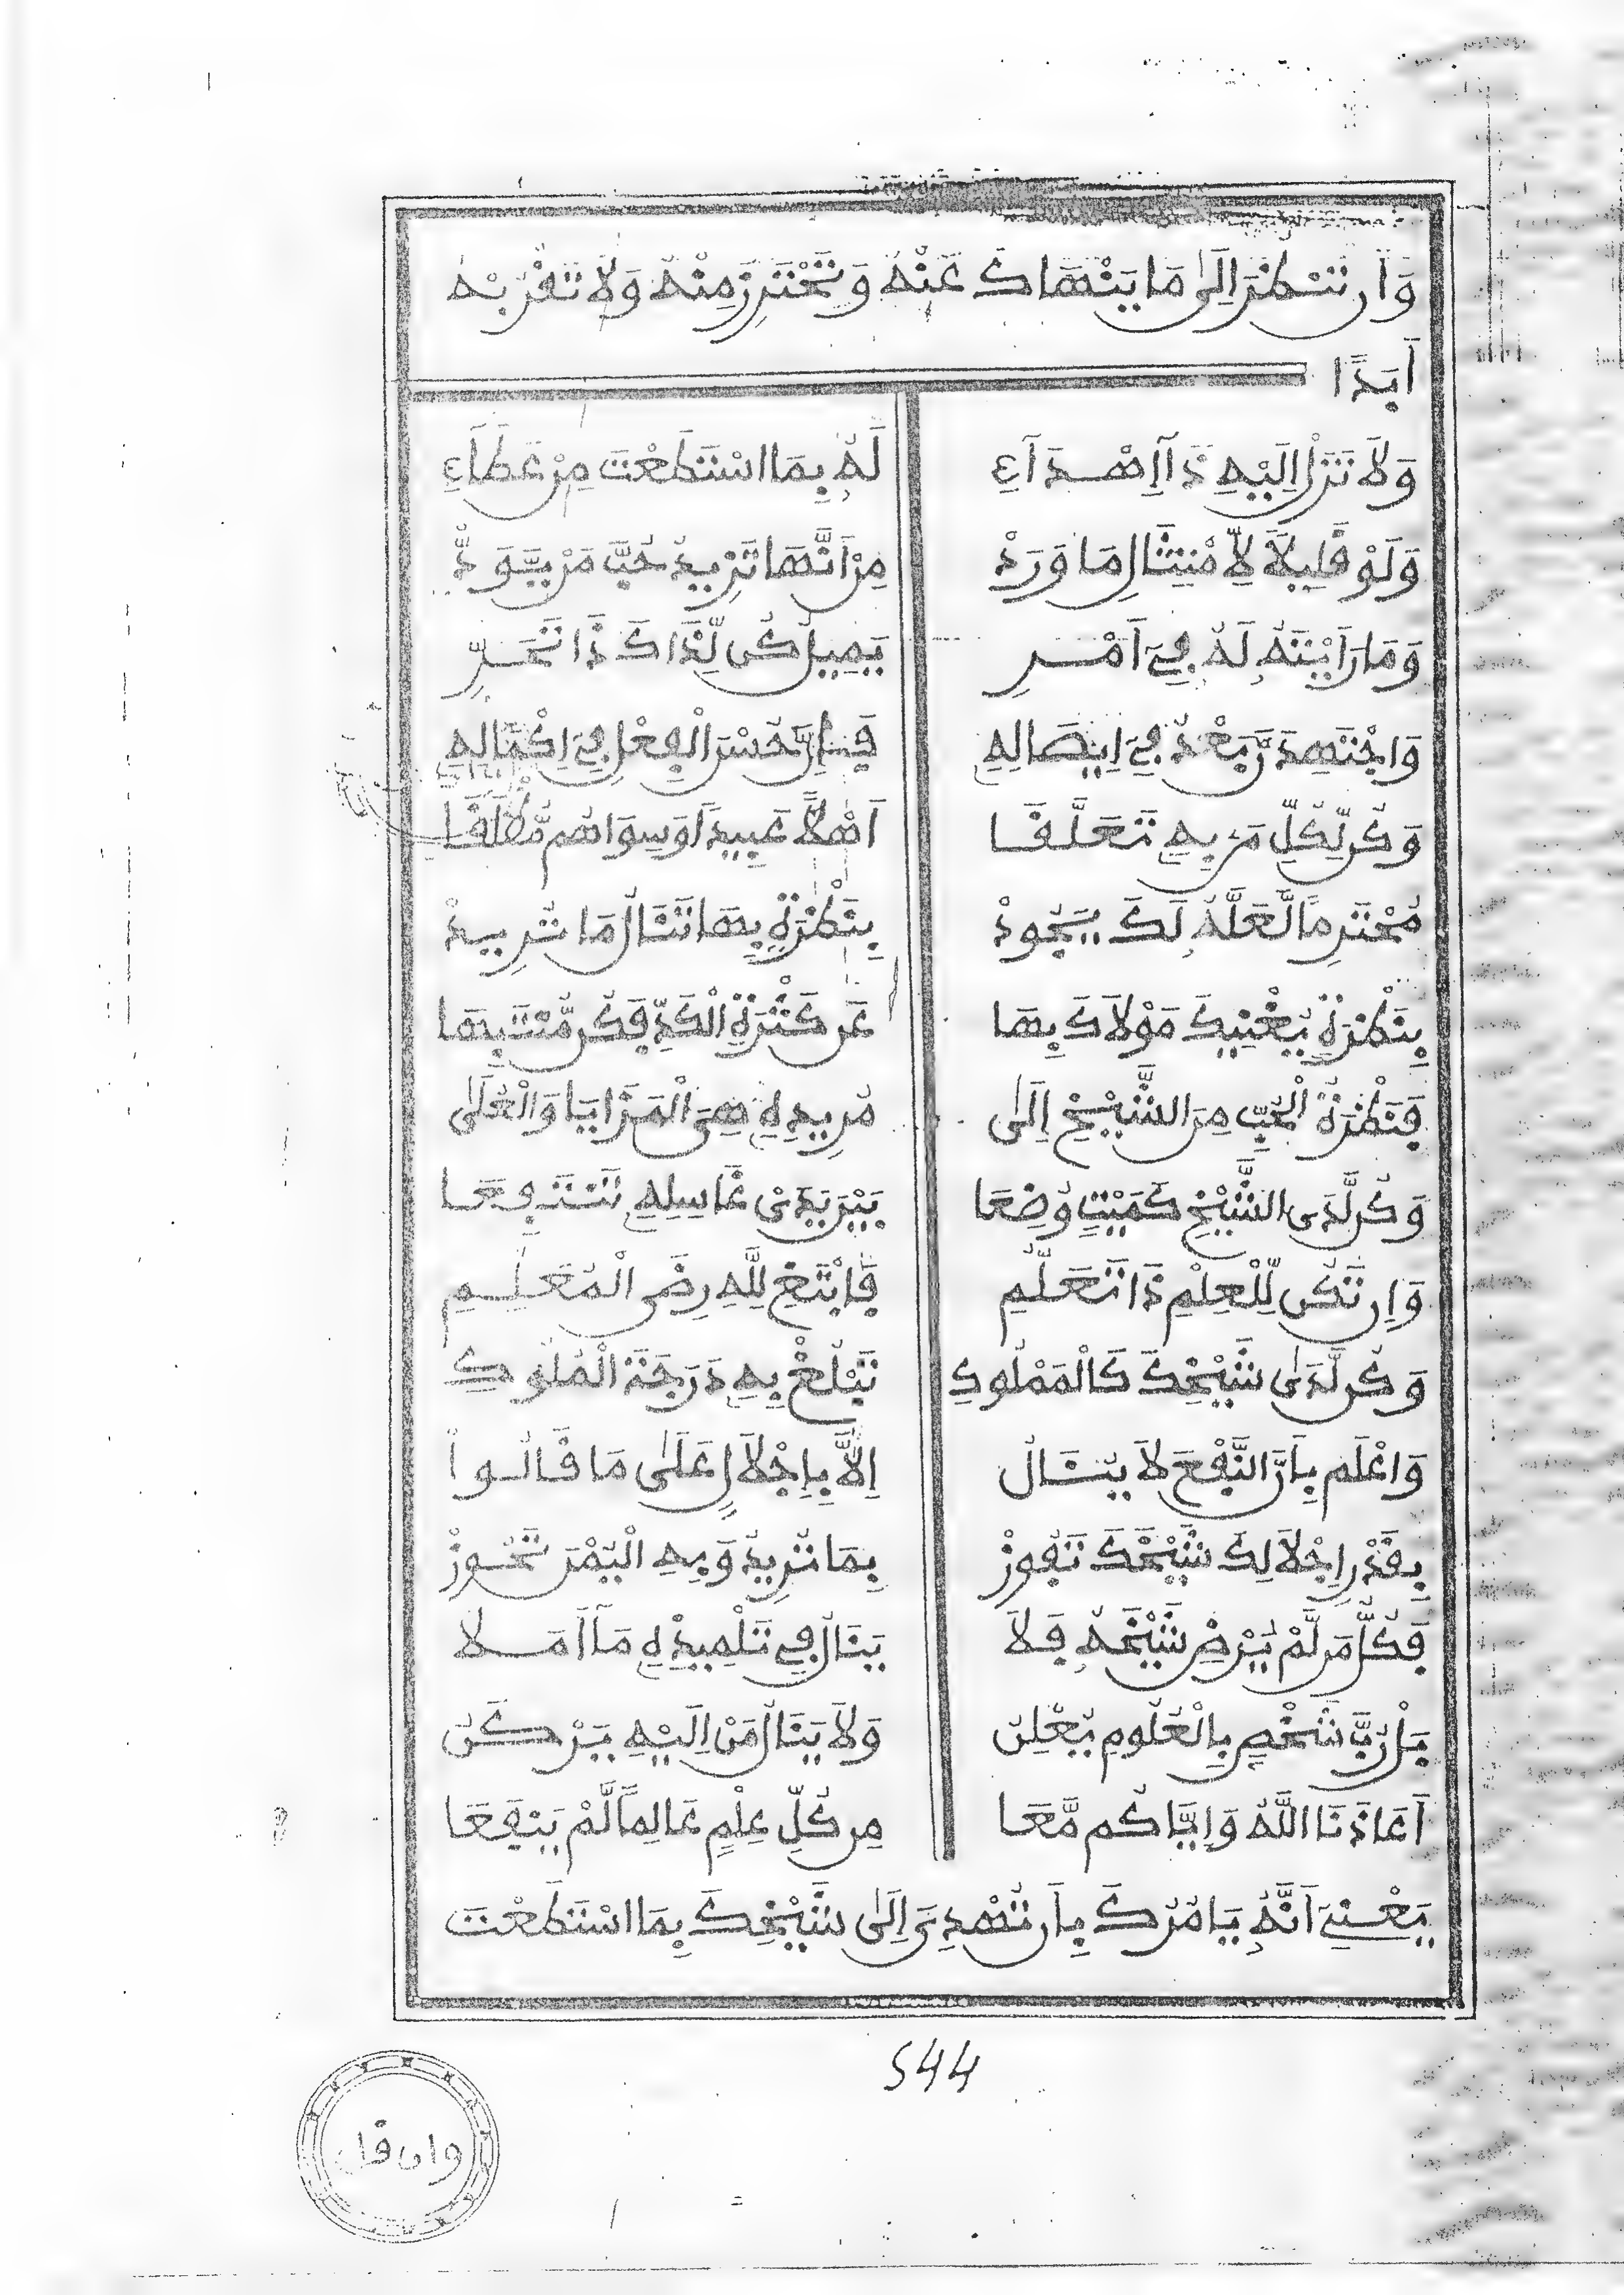 وَأَن تَنظُرَ إِلَىٰ مَا يَنْهَاكَ عَنْهُ وَتَحْتَرِزَ مِنْهُ وَلَا تَقْرَبْهُ
أَبَدًا
وَلَا تَزَلْ إِلَيْهِ ذَا إِهْدَاءِ لَهُ بِمَا اسْتَطَعْتَ مِنْ عَطَاءِ
وَلَوْ قَلِيلًا لِّامْتِثَالِ مَا وَرَدْ مِنْ أَنَّهَا تَزِيدُ حُبَّ مَن يَوَدّْ
وَمَا رَأَيْتَهُ لَهُ فِي أَمْرِ يَمِيلُ كُن لِّذَاكَ ذَا تَحَرِّ
وَاجْتَهِدَن بَعْدُ فِي إِيصَالِهِ فَإِنَّ حُسْنَ الْفِعْلِ فِي إِكْمَالِهِ
وَكُن لِّكُلِّ مَن بِهِ تَعَلَّقَا أَهْلًا عَبِيدًا أَوْ سِوَاهُم مُّطْلَقَا
مُحْتَرِمًا لَّعَلَّهُ لَكَ يَجُودْ بِنَظْرَةٍ بِهَا تَنَالُ مَا تُرِيدْ
بِنَظْرَةٍ يُغْنِيكَ مَوْلَاكَ بِهَا عَن كَثْرَةِ الْكَدِّ فَكُن مُّنْتَبِهَا
فَنَظْرَةُ الْحُبِّ مِنَ الشَّيْخِ إِلَىٰ مُرِيدِهِ هِيَ الْمَزَايَا وَالْعُلَىٰ
وَكُن لَّدَى الشَّيْخِ كَمَيْتٍ وُضِعَا بَيْنَ يَدَيْ غَاسِلِهِ تَنْتَفِعَا
وَإِن تَكُن لِّلْعِلْمِ ذَا تَعَلُّمِ فَابْتَغِ لِلَّهِ رِضَى الْمُعَلِّمِ
وَكُن لَّدَىٰ شَيْخِكَ كَالْمَمْلُوكِ تَبْلُغْ بِهِ دَرَجَةَ الْمُلُوكِ
وَاعْلَم بِأَنَّ النَّفْعَ لَا يُنَالُ إِلَّا بِإِجْلَالٍ عَلَىٰ مَا قَالُوا
بِقَدْرِ إِجْلَالِكَ شَيْخَكَ تَفُوزْ بِمَا تُرِيدُ وَبِهِ الْيُمْنَ تَحُوزْ
فَكُلُّ مَن لَّمْ يُرْضِ شَيْخَهُ فَلَا يَنَالُ فِي تَلْمِيذِهِ مَا أَمَلَا
بَلْ رُبَّ شَخْصٍ بِالْعُلُومِ يُعْلِنُ وَلَا يَنَالُ مَنْ إِلَيْهِ يَرْكَنُ
أَعَاذَنَا اللَّهُ وَإِيَّاكُم مَّعَا مِن كُلِّ عِلْمٍ عَالِمًا لَّمْ يَنْفَعَا
يَعْنِي أَنَّهُ يَامُرُكَ بِأَن تُهْدِيَ إِلَىٰ شَيْخِكَ بِمَا اسْتَطَعْتَ
544